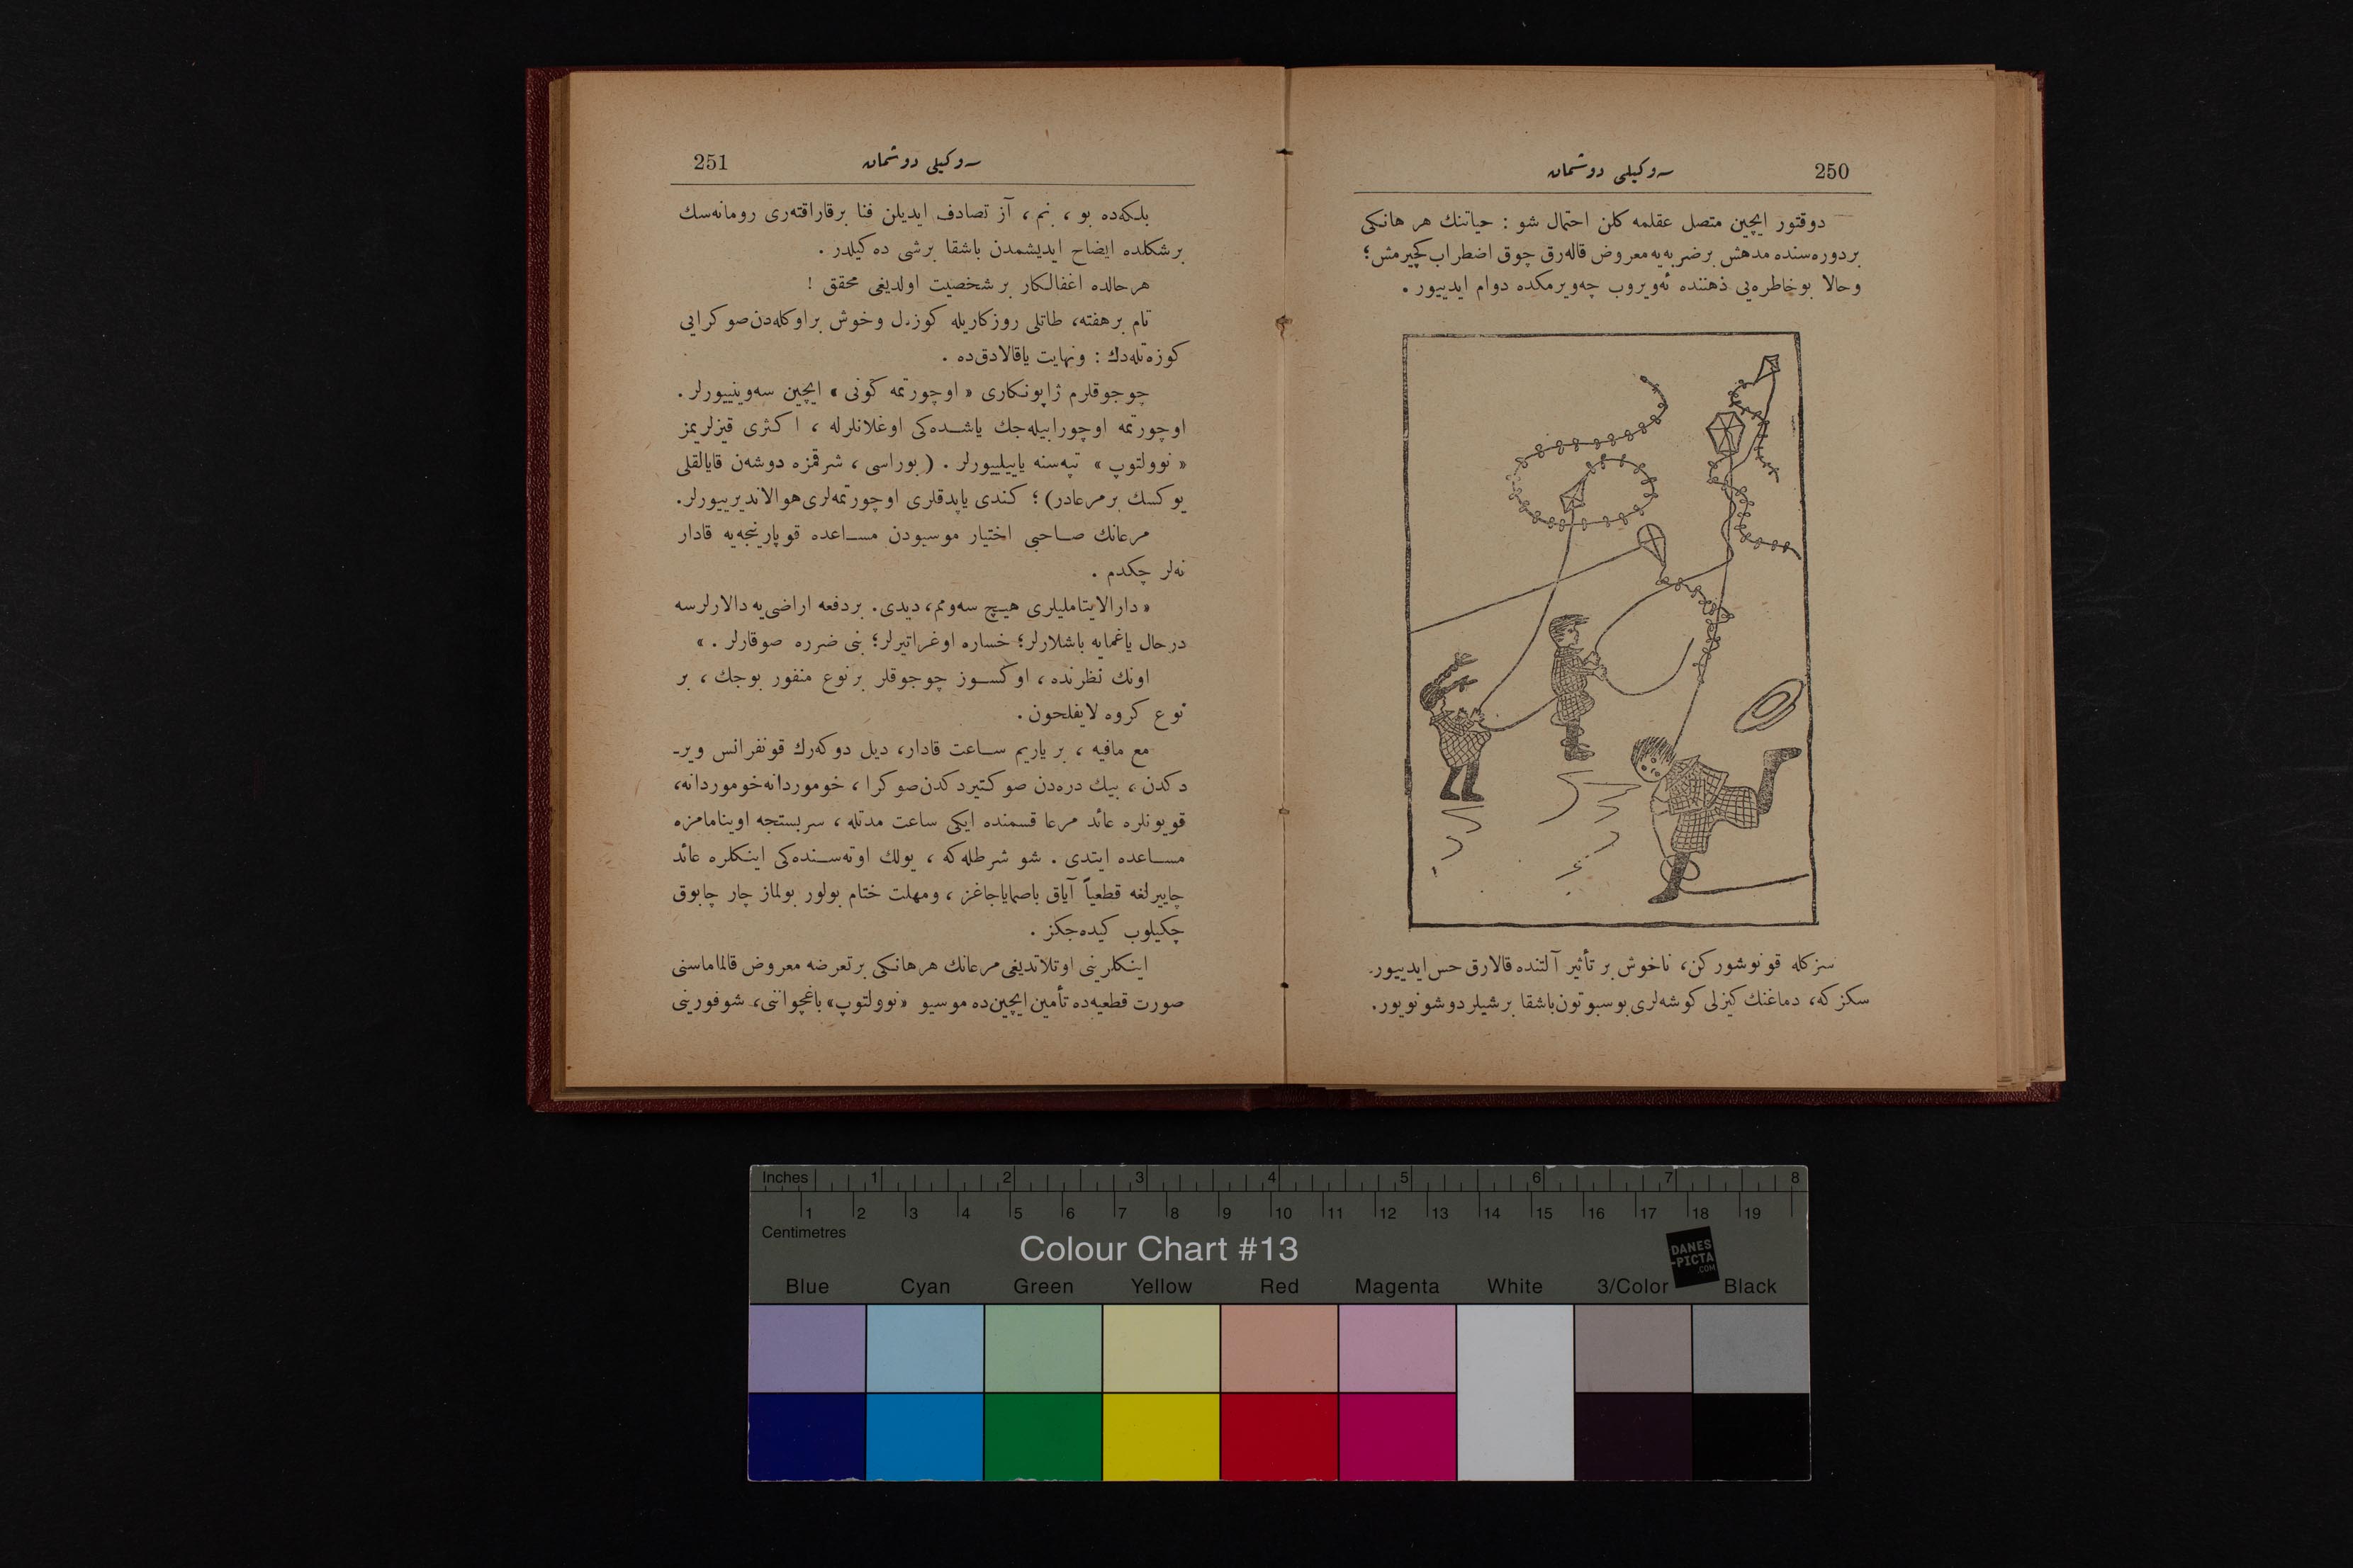 250
سوكيلی دوشمان
دوقتور ايچين متصل عقلمه كلن احتمال شو : حياتنك هر هانكی
بردوره‌سنده مدهش برضربه‌يه معروض قاله‌رق چوق اضطراب كچيرمش؛
وحالا بوخاطره‌يی ذهننده ئه‌ويروب چه‌ويرمكده دوام ايدييور .
سزكله قونوشوركن، ناخوش بر تأثير آلتنده قالارق حس ايدييور-
سكز كه، دماغنك كيزلی كوشه‌لری بوسبوتون باشقا برشيلر دوشونويور.
سوكيلی دوشمان
251
بلكه‌ده بو ، بنم ، آز تصادف ايديلن فنا برقاراقته‌ری رومانه‌سك
برشكلده ايضاح ايديشمدن باشقا برشی ده‌كيلدر .
هرحالده اغفالكار برشخصيت اولديغی محقق !
تام برهفته، طاتلی روزكاريله كوزل وخوش براوكله‌دن‌صوكرايی
كوزه‌تله‌دك : ونهايت ياقالادق‌ده .
چوجوقلرم ژاپونكاری « اوچورتمه كونی » ايچين سه‌وينييورلر .
اوچورتمه اوچورابيله‌جك ياشده‌كی اوغلانلرله ، اكثری قيزلريمز
« نوولتوپ » تپه‌سنه ياييلييورلر . ( بوراسی ، شرقمزه دوشه‌ن قايالقلی
يوكسك برمرعادر) ؛ كندی ياپدقلری اوچورتمه‌لری هوالانديرييورلر.
مرعانك صاحبی اختيار موسيودن مساعده قوپارينجه‌يه قادار
نه‌لر چكدم .
« دارالايتامليلری هيچ سه‌ومم، ديدی. بردفعه اراضی‌يه دالارلرسه
درحال ياغمايه باشلارلر؛ خساره اوغراتيرلر؛ بنی ضرره صوقارلر . »
اونك نظرنده ، اوكسوز چوجوقلر برنوع منفور بوجك ، بر
نوع كروه لايفلحون .
مع مافيه ، بر ياريم ساعت قادار، ديل دوكه‌رك قونفرانس وير-
دكدن ، بيك دره‌دن صو كتيردكدن صوكرا ، خوموردانه خوموردانه،
قويونلره عائد مرعا قسمنده ايكی ساعت مدتله ، سربستجه اوينامامزه
مساعده ايتدی . شو شرطله‌كه ، يولك اوته‌سنده‌كی اينكلره عائد
چاييرلغه قطعياً آياق باصماياجاغز ، ومهلت ختام بولور بولماز چار چابوق
چكيلوب كيده‌جكز .
اينكلرينی اوتلاتديغی مرعانك هرهانكی برتعرضه معروض قالماماسنی
صورت قطعيه‌ده تأمين ايچين‌ده موسيو «نوولتوپ» باغچواننی، شوفورينی
Inches 1 2 3 4 5 6 7 8
1 2 3 4 5 6 7 8 9 10 11 12 13 14 15 16 17 18 19
Centimetres
Colour Chart #13
DANES
-PICTA
.COM
Blue Cyan Green Yellow Red Magenta White 3/Color Black